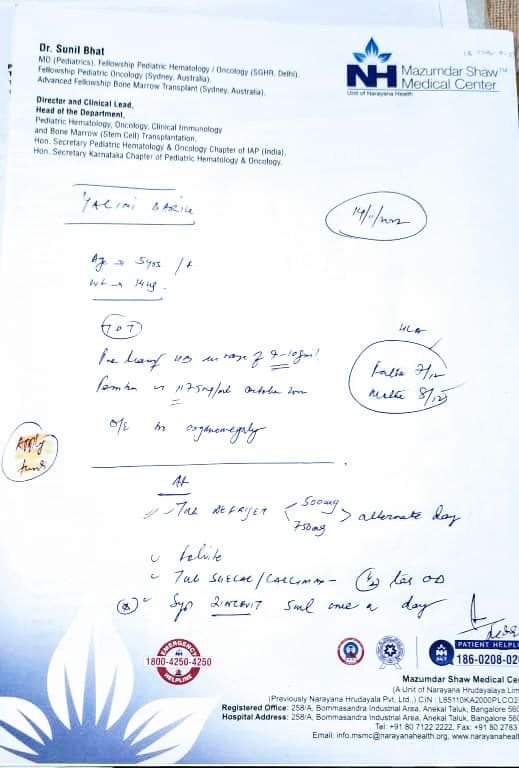 Dr. Sunil Bhat
MD (Pediatrics), Fellowship Pediatric Hematology / Oncology (SGHR, Delhi),
Fellowship Pediatric Oncology (Sydney, Australia),
Advanced Fellowship Bone Marrow Transplant (Sydney, Australia).
Director and Clinical Lead,
Head of the Department,
Pediatric Hematology, Oncology, Clinical Immunology
and Bone Marrow (Stem Cell) Transplantation,
Hon. Secretary Pediatric Hematology & Oncology Chapter of IAP (India),
Hon. Secretary Karnataka Chapter of Pediatric Hematology & Oncology.
NH Mazumdar Shaw™
Medical Center
Unit of Narayana Health
14/11/
Age → 5yrs /
wt → 14kg.
TDT
HLA
Hb in range of 9-10gm/
7/12
8/12
October
O/E organomegaly
Apply
fund
Tab DEFRIJET 500mg
750mg alternate day
Folvite
Tab SHELCAL/ OD
Syp ZINCOVIT 5ml once a day
EMERGENCY
NH
1800-4250-4250
HELPLINE
NH PATIENT HELPL
24x7 186-0208-02
Mazumdar Shaw Medical Ce
(A Unit of Narayana Hrudayalaya Lim
(Previously Narayana Hrudayala Pvt. Ltd.,) CIN : L85110KA2000PLCO2
Registered Office: 258/A, Bommasandra Industrial Area, Anekal Taluk, Bangalore 560
Hospital Address: 258/A, Bommasandra Industrial Area, Anekal Taluk, Bangalore 560
Tel: +91 80 7122 2222, Fax: +91 80 2783
Email: info.msmc@narayanahealth.org, www.narayanahealth